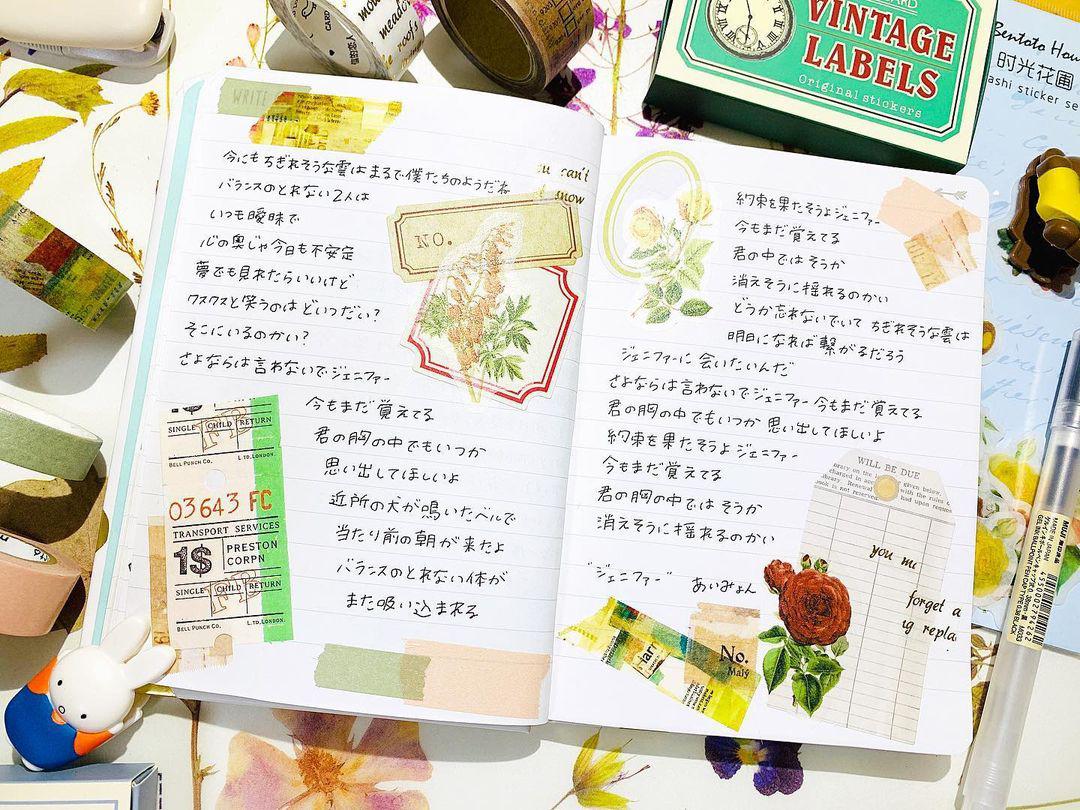 WRITE
今にもちぎれそうな雲はまるで僕たちのようだね
バランスのとれない2人は
いつも曖昧で
心の奥じゃ今日も不安定
夢でも見れたらいいけど
クスクスと笑うのはどいつだい?
そこにいるのかい?
さよならは言わないでジェニファー
今もまだ覚えてる
君の胸の中でもいつか
思い出してほしいよ
近所の犬が鳴いたベルで
当たり前の朝が来たよ
バランスのとれない体が
また吸い込まれる
can't
NO.
SINGLE CHILD RETURN
BELL PUNCH CO. LTD. LONDON.
03643 FC
TRANSPORT SERVICES
1S PRESTON
CORPN
SINGLE CHILD RETURN
BELL PUNCH CO. LTD. LONDON.
約束を果たそうよジェニファー
今もまだ覚えてる
君の中ではそうか
消えそうに揺れるのかい
どうか忘れないでいて ちぎれそうな雲は
明日になれば繋がるだろう
ジェニファーに会いたいんだ
さよならは言わないでジェニファー 今もまだ覚えてる
君の胸の中でもいつか 思い出してほしいよ
約束を果たそうよジェニファー
今もまだ覚えてる
君の胸の中ではそうか
消えそうに揺れるのかい
"ジェニファー" あいみょん
No.
WILL BE DUE
given below,
with the rules.
had upon request
you
forget a
VINTAGE
LABELS
Original stickers
Bentoto Hou
时光花圃
ashi sticker se
CARD
meadow
roots
MUJI 無印良品
MADE IN JAPAN